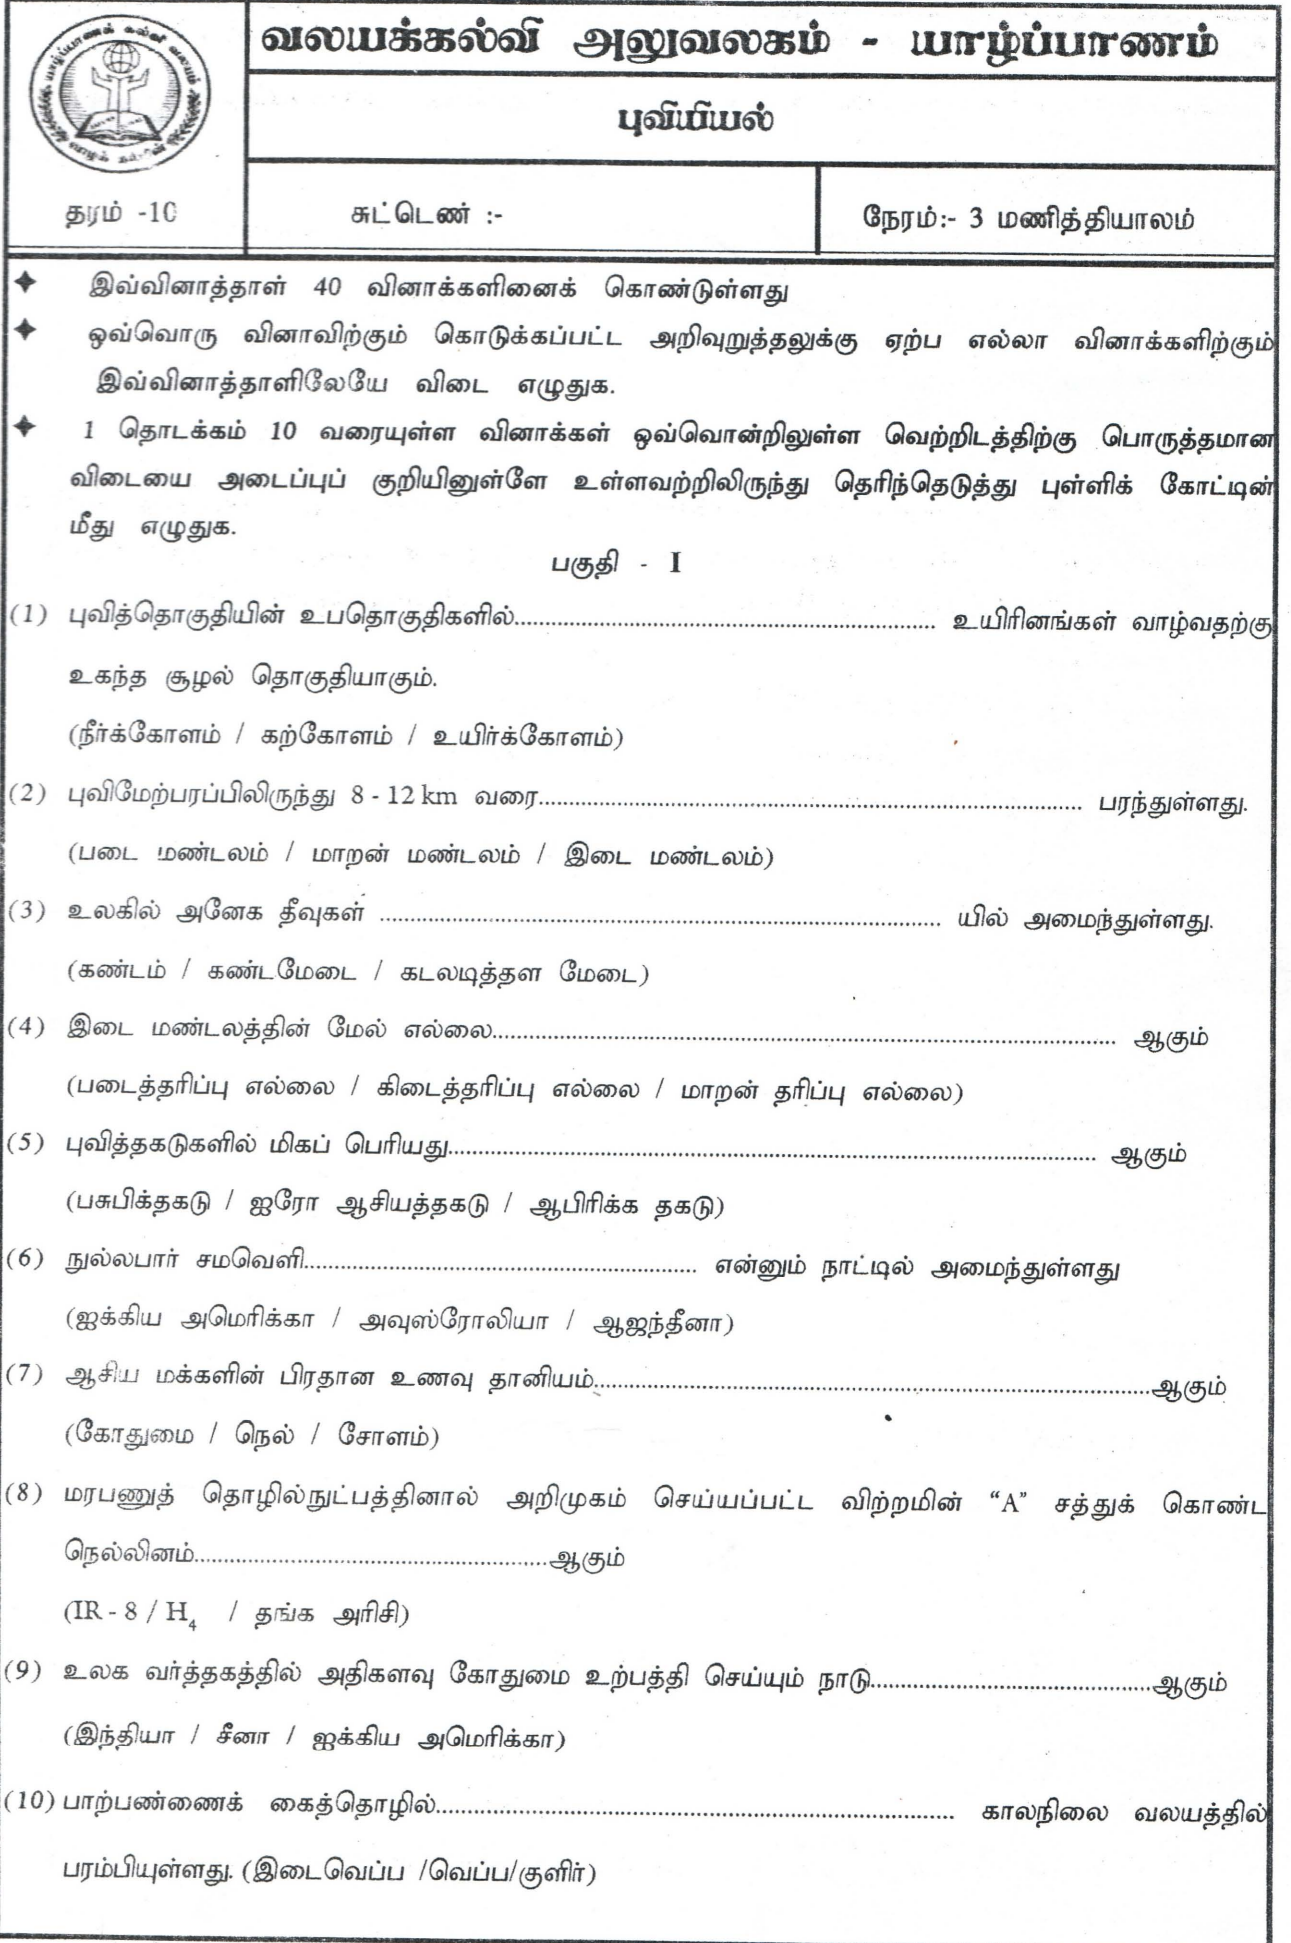 யாழ்ப்பாணக் கல்வி வலயம்
வலயக்கல்வி அலுவலகம் - யாழ்ப்பாணம்
புவியியல்
தரம் -10
சுட்டெண் :-
நேரம்:- 3 மணித்தியாலம்
✦ இவ்வினாத்தாள் 40 வினாக்களினைக் கொண்டுள்ளது
✦ ஒவ்வொரு வினாவிற்கும் கொடுக்கப்பட்ட அறிவுறுத்தலுக்கு ஏற்ப எல்லா வினாக்களிற்கும்
இவ்வினாத்தாளிலேயே விடை எழுதுக.
✦ 1 தொடக்கம் 10 வரையுள்ள வினாக்கள் ஒவ்வொன்றிலுள்ள வெற்றிடத்திற்கு பொருத்தமான
விடையை அடைப்புப் குறியினுள்ளே உள்ளவற்றிலிருந்து தெரிந்தெடுத்து புள்ளிக் கோட்டின்
மீது எழுதுக.
பகுதி - I
(1) புவித்தொகுதியின் உபதொகுதிகளில்.................... உயிரினங்கள் வாழ்வதற்கு
உகந்த சூழல் தொகுதியாகும்.
(நீர்க்கோளம் / கற்கோளம் / உயிர்க்கோளம்)
(2) புவிமேற்பரப்பிலிருந்து 8 - 12 km வரை.................... பரந்துள்ளது.
(படை மண்டலம் / மாறன் மண்டலம் / இடை மண்டலம்)
(3) உலகில் அனேக தீவுகள் .................... யில் அமைந்துள்ளது.
(கண்டம் / கண்டமேடை / கடலடித்தள மேடை)
(4) இடை மண்டலத்தின் மேல் எல்லை.................... ஆகும்
(படைத்தரிப்பு எல்லை / கிடைத்தரிப்பு எல்லை / மாறன் தரிப்பு எல்லை)
(5) புவித்தகடுகளில் மிகப் பெரியது.................... ஆகும்
(பசுபிக்தகடு / ஐரோ ஆசியத்தகடு / ஆபிரிக்க தகடு)
(6) நுல்லபார் சமவெளி.................... என்னும் நாட்டில் அமைந்துள்ளது
(ஐக்கிய அமெரிக்கா / அவுஸ்ரோலியா / ஆஜந்தீனா)
(7) ஆசிய மக்களின் பிரதான உணவு தானியம்....................ஆகும்
(கோதுமை / நெல் / சோளம்)
(8) மரபணுத் தொழில்நுட்பத்தினால் அறிமுகம் செய்யப்பட்ட விற்றமின் “A” சத்துக் கொண்ட
நெல்லினம்....................ஆகும்
(IR - 8 / H₄ / தங்க அரிசி)
(9) உலக வர்த்தகத்தில் அதிகளவு கோதுமை உற்பத்தி செய்யும் நாடு....................ஆகும்
(இந்தியா / சீனா / ஐக்கிய அமெரிக்கா)
(10) பாற்பண்ணைக் கைத்தொழில்.................... காலநிலை வலயத்தில்
பரம்பியுள்ளது. (இடைவெப்ப /வெப்ப/குளிர்)